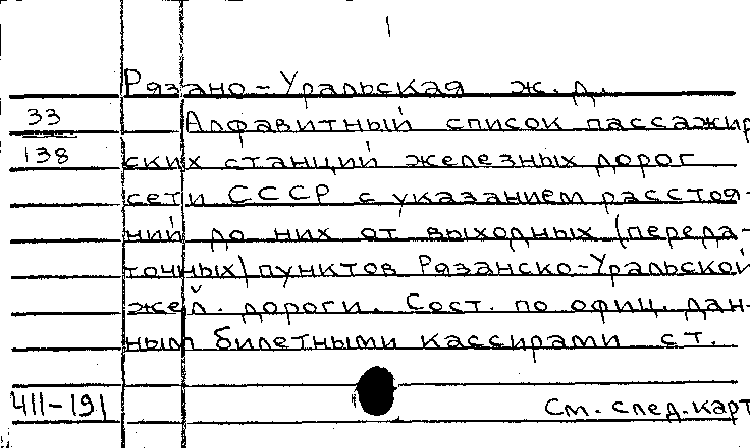 Рязано-Уральская ж. д.
33
138
Алфавитный список пассажир
ских станций железных дорог
сети СССР с указанием расстоя-
ний до них от выходных (переда-
точных) пунктов Рязанско-Уральской
жел. дороги. Сост. по офиц. дан-
ным билетными кассирами ст.
411-191
См. след. карт